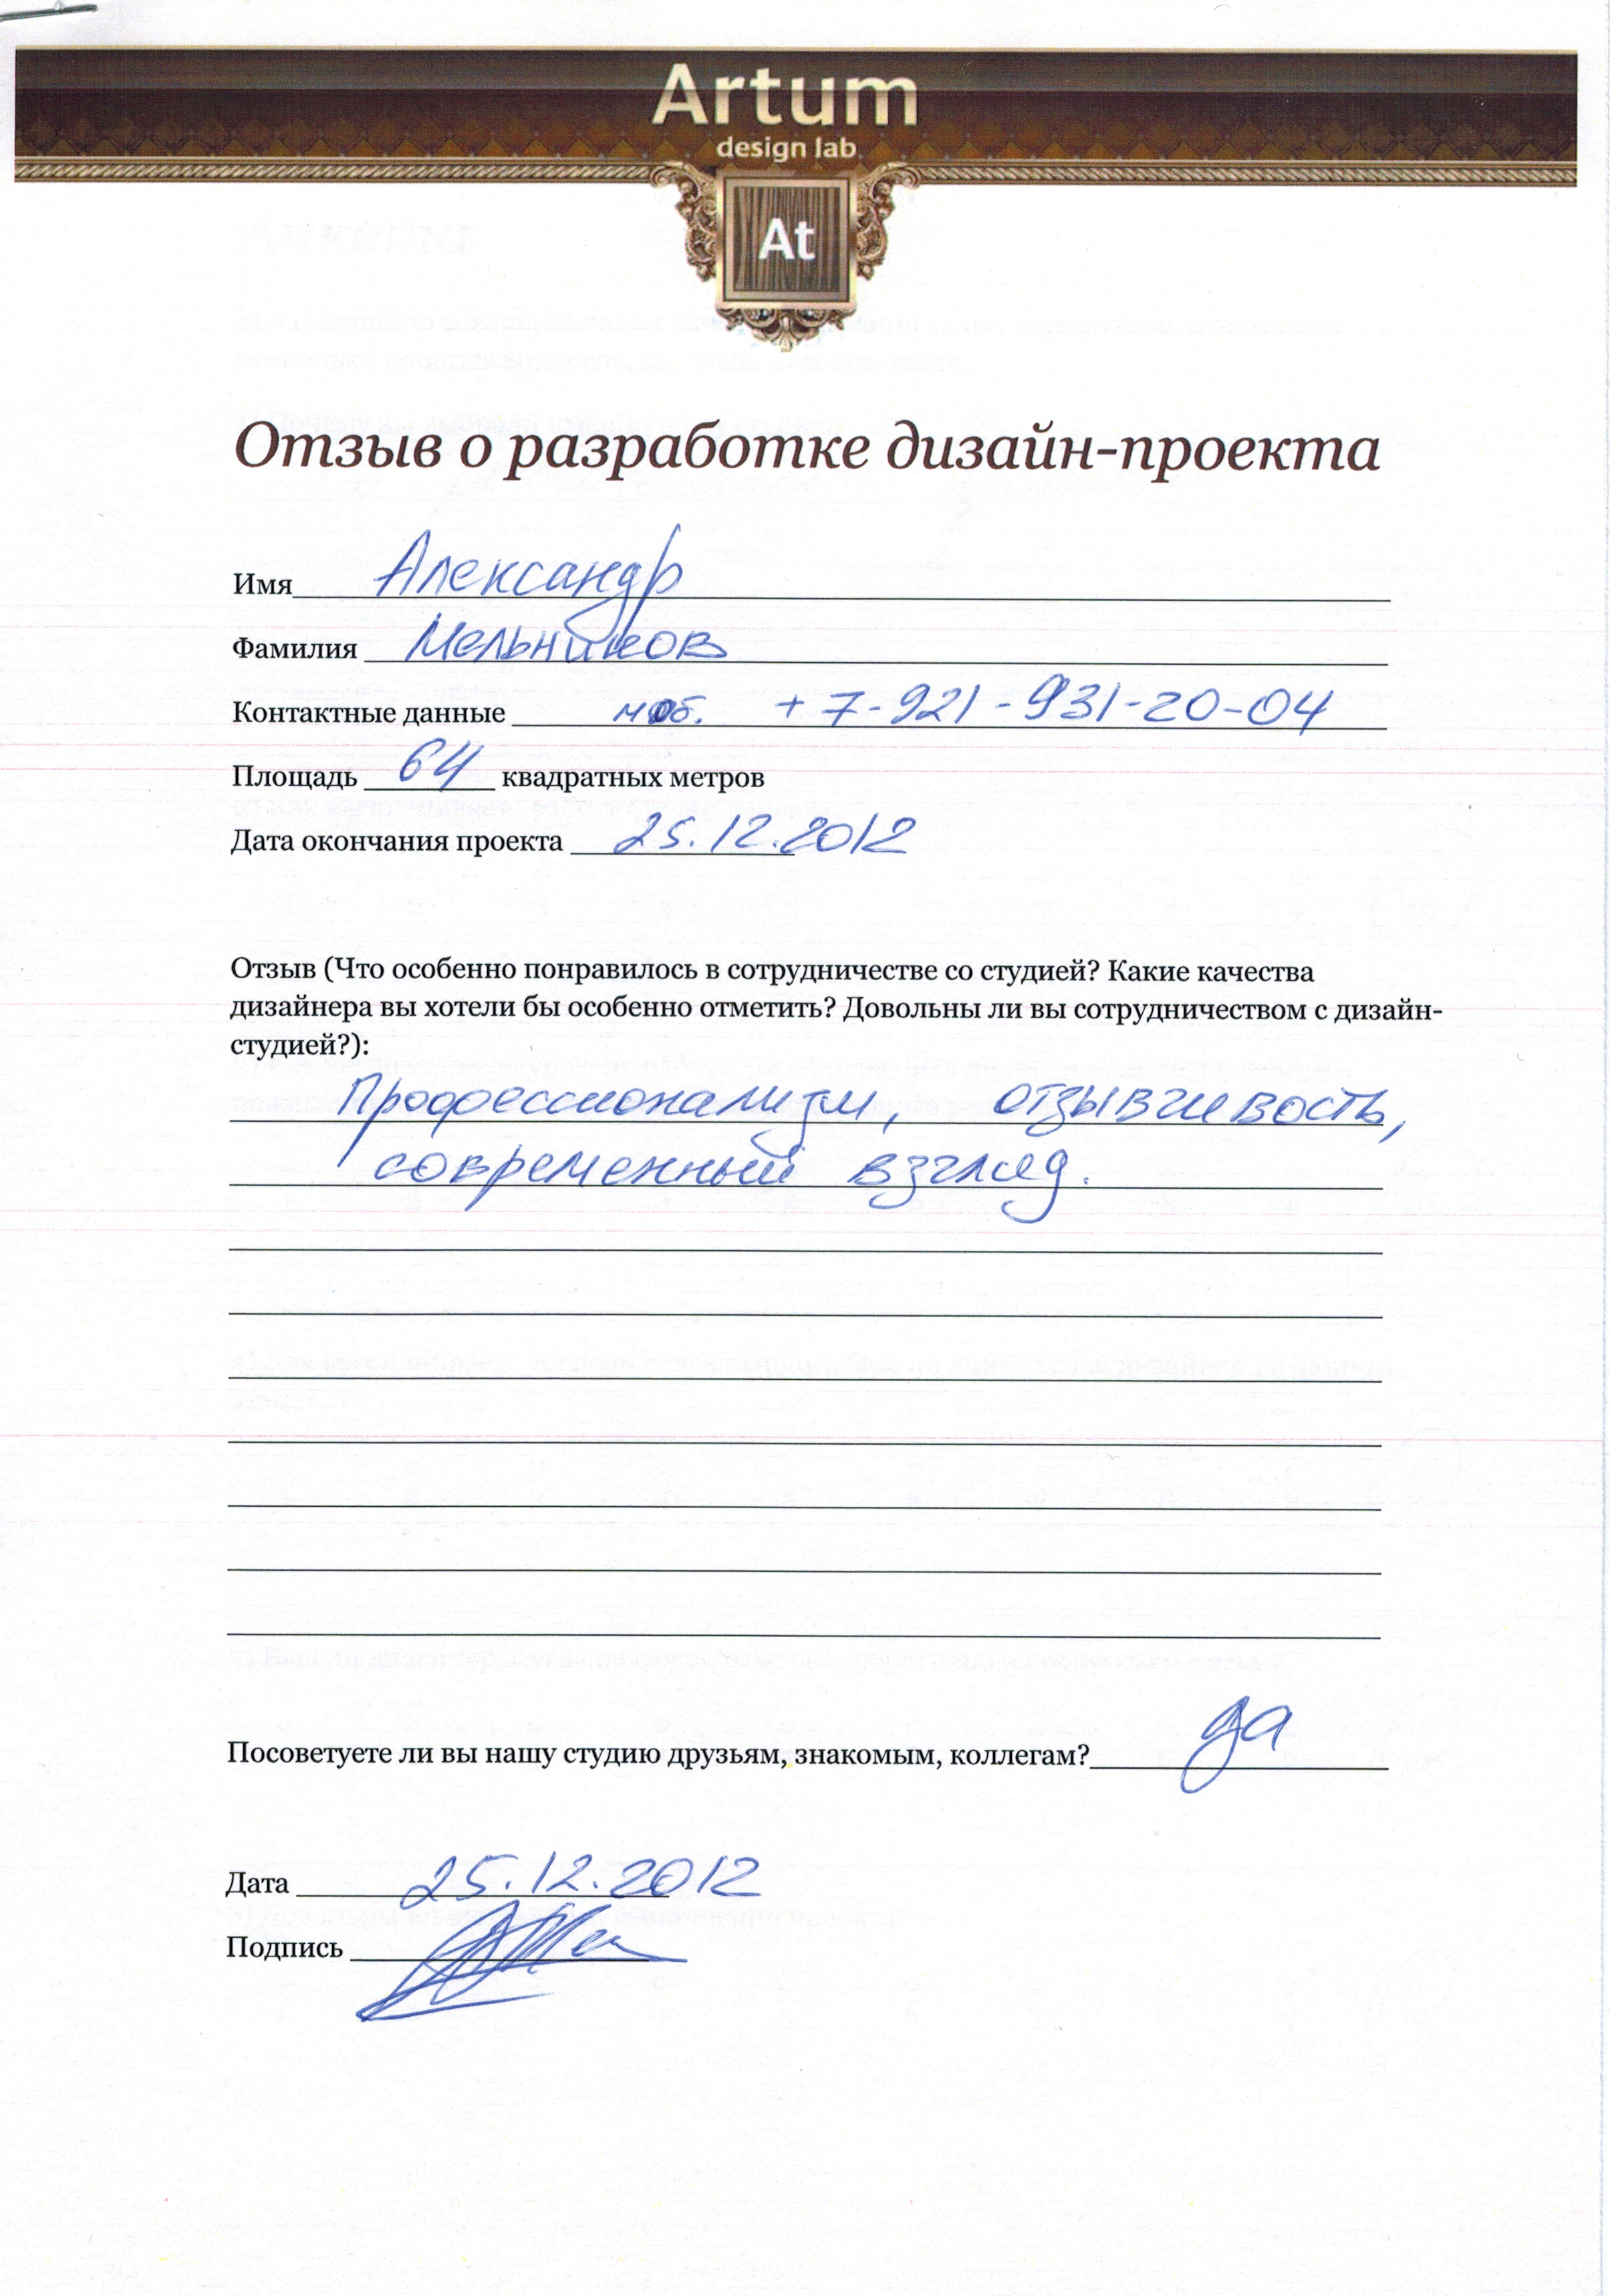 Artum
design lab
At
Отзыв о разработке дизайн-проекта
Имя Александр
Фамилия Мельников
Контактные данные моб. +7-921-931-20-04
Площадь 64 квадратных метров
Дата окончания проекта 25.12.2012
Отзыв (Что особенно понравилось в сотрудничестве со студией? Какие качества
дизайнера вы хотели бы особенно отметить? Довольны ли вы сотрудничеством с дизайн-
студией?):
Профессионализм, отзывчивость,
современный взгляд.
Посоветуете ли вы нашу студию друзьям, знакомым, коллегам? да
Дата 25.12.2012
Подпись